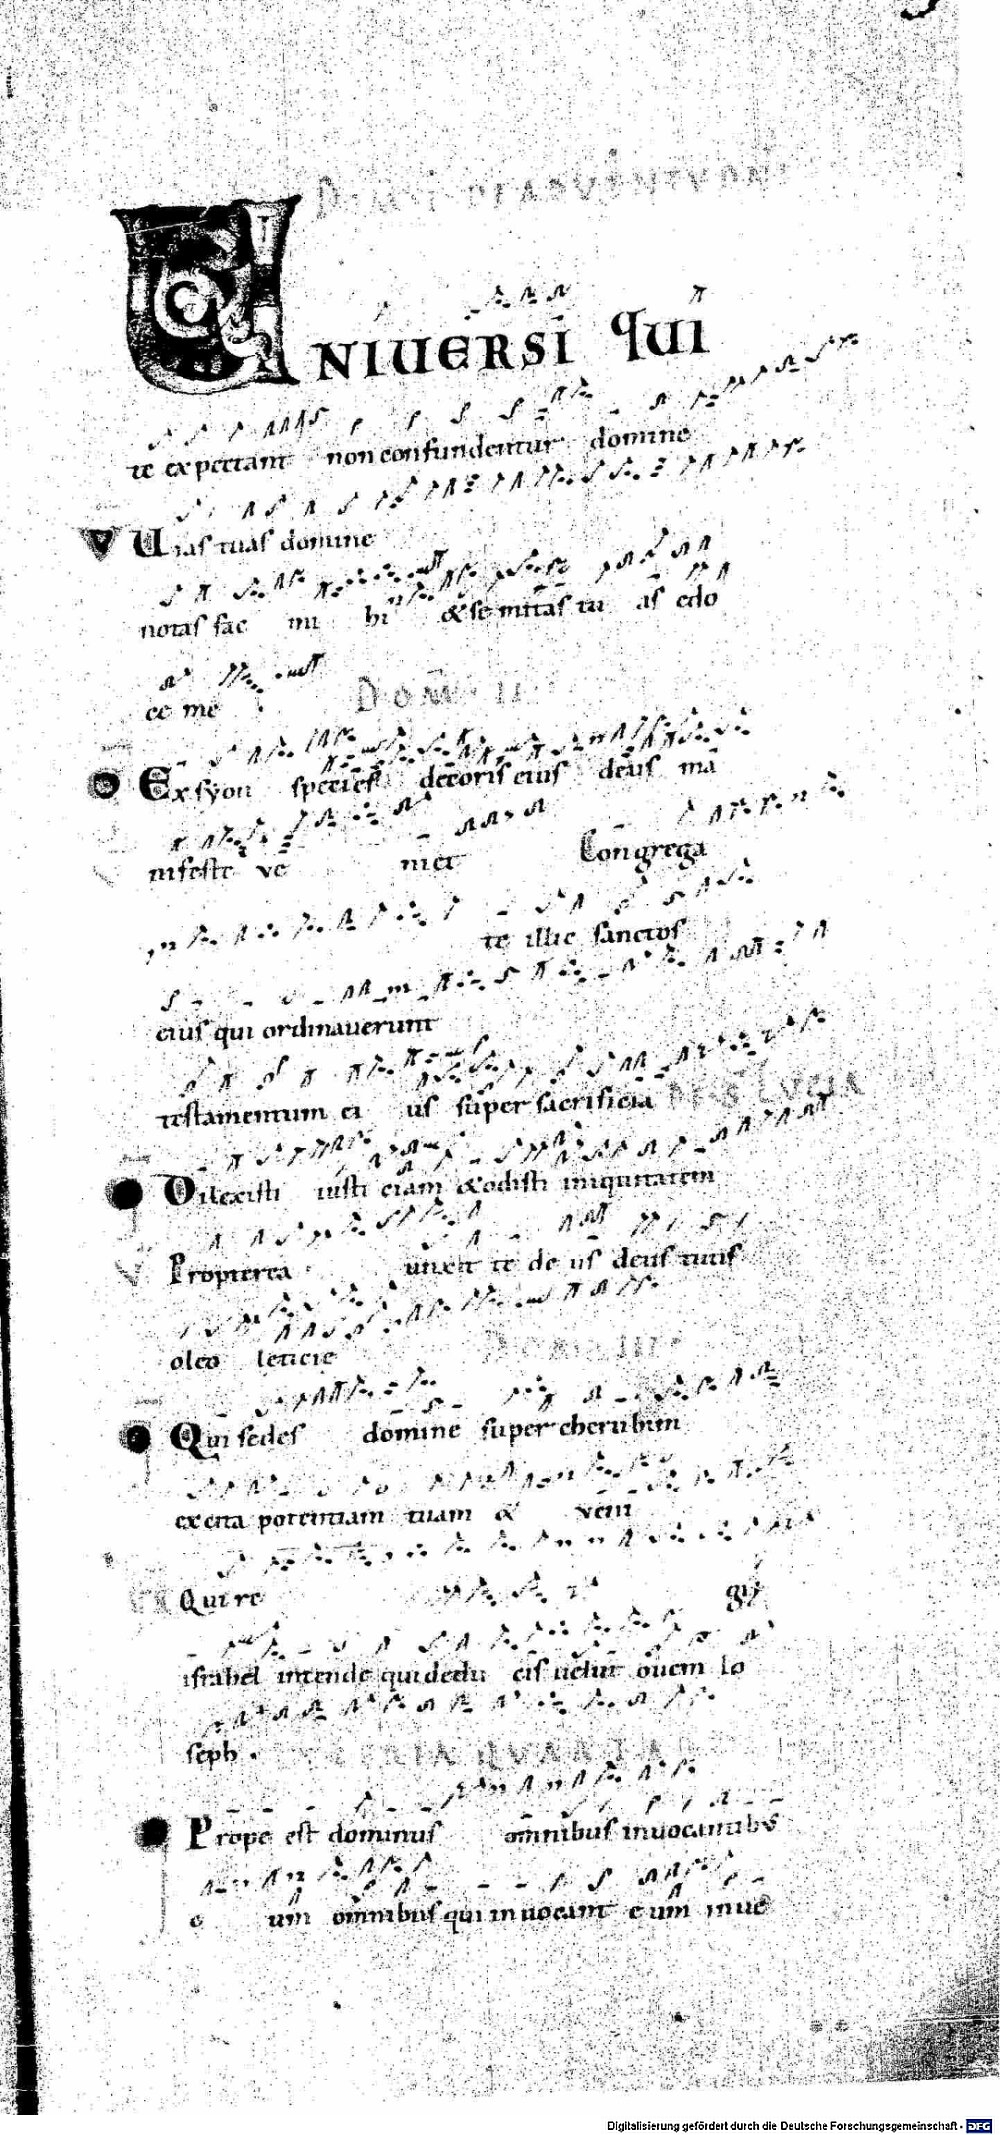 UNIVERSI qUI
te expectant non confundentur domine
Uias tuas domine
notas fac mi hi & semitas tu as edo
ce me
DOM II
Ex syon species decoris eius deus ma
nifeste ve niet Congrega
te illic sanctos
eius qui ordinaverunt
testamentum ei us super sacrificia DE S LUCIA
Dilexisti iusti ciam & odisti iniquitatem
Propterea unxit te de us deus tuus
oleo leticie
DOM III
Qui sedes domine super cherubim
excita potentiam tuam & veni
Qui re gis
israhel intende qui deducis eis velut ovem io
seph .
FERIA QUARTA
Prope est dominus omnibus invocantibus
e um omnibus qui invocant eum in ve
Digitalisierung gefördert durch die Deutsche Forschungsgemeinschaft - DFG